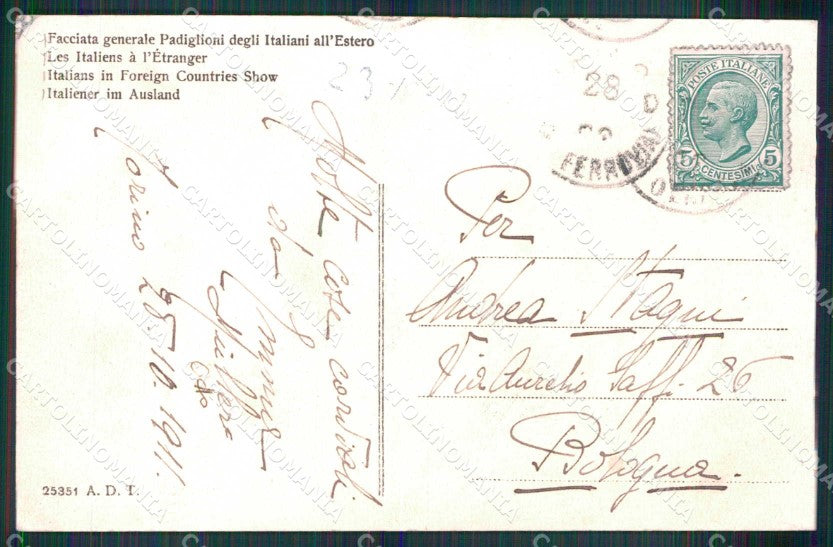 Facciata generale Padiglioni degli Italiani all'Estero
Les Italiens à l'Étranger
Italians in Foreign Countries Show
Italiener im Ausland
231
POSTE ITALIANE
5 5
CENTESIMI
28
FERROVIA
Molte cose cordiali
da
Torino 25.10.1911.
Per
Andrea Stagni
Via Aurelio Saffi. 26
Bologna.
25351 A. D. T.
CARTOLINOMANIA